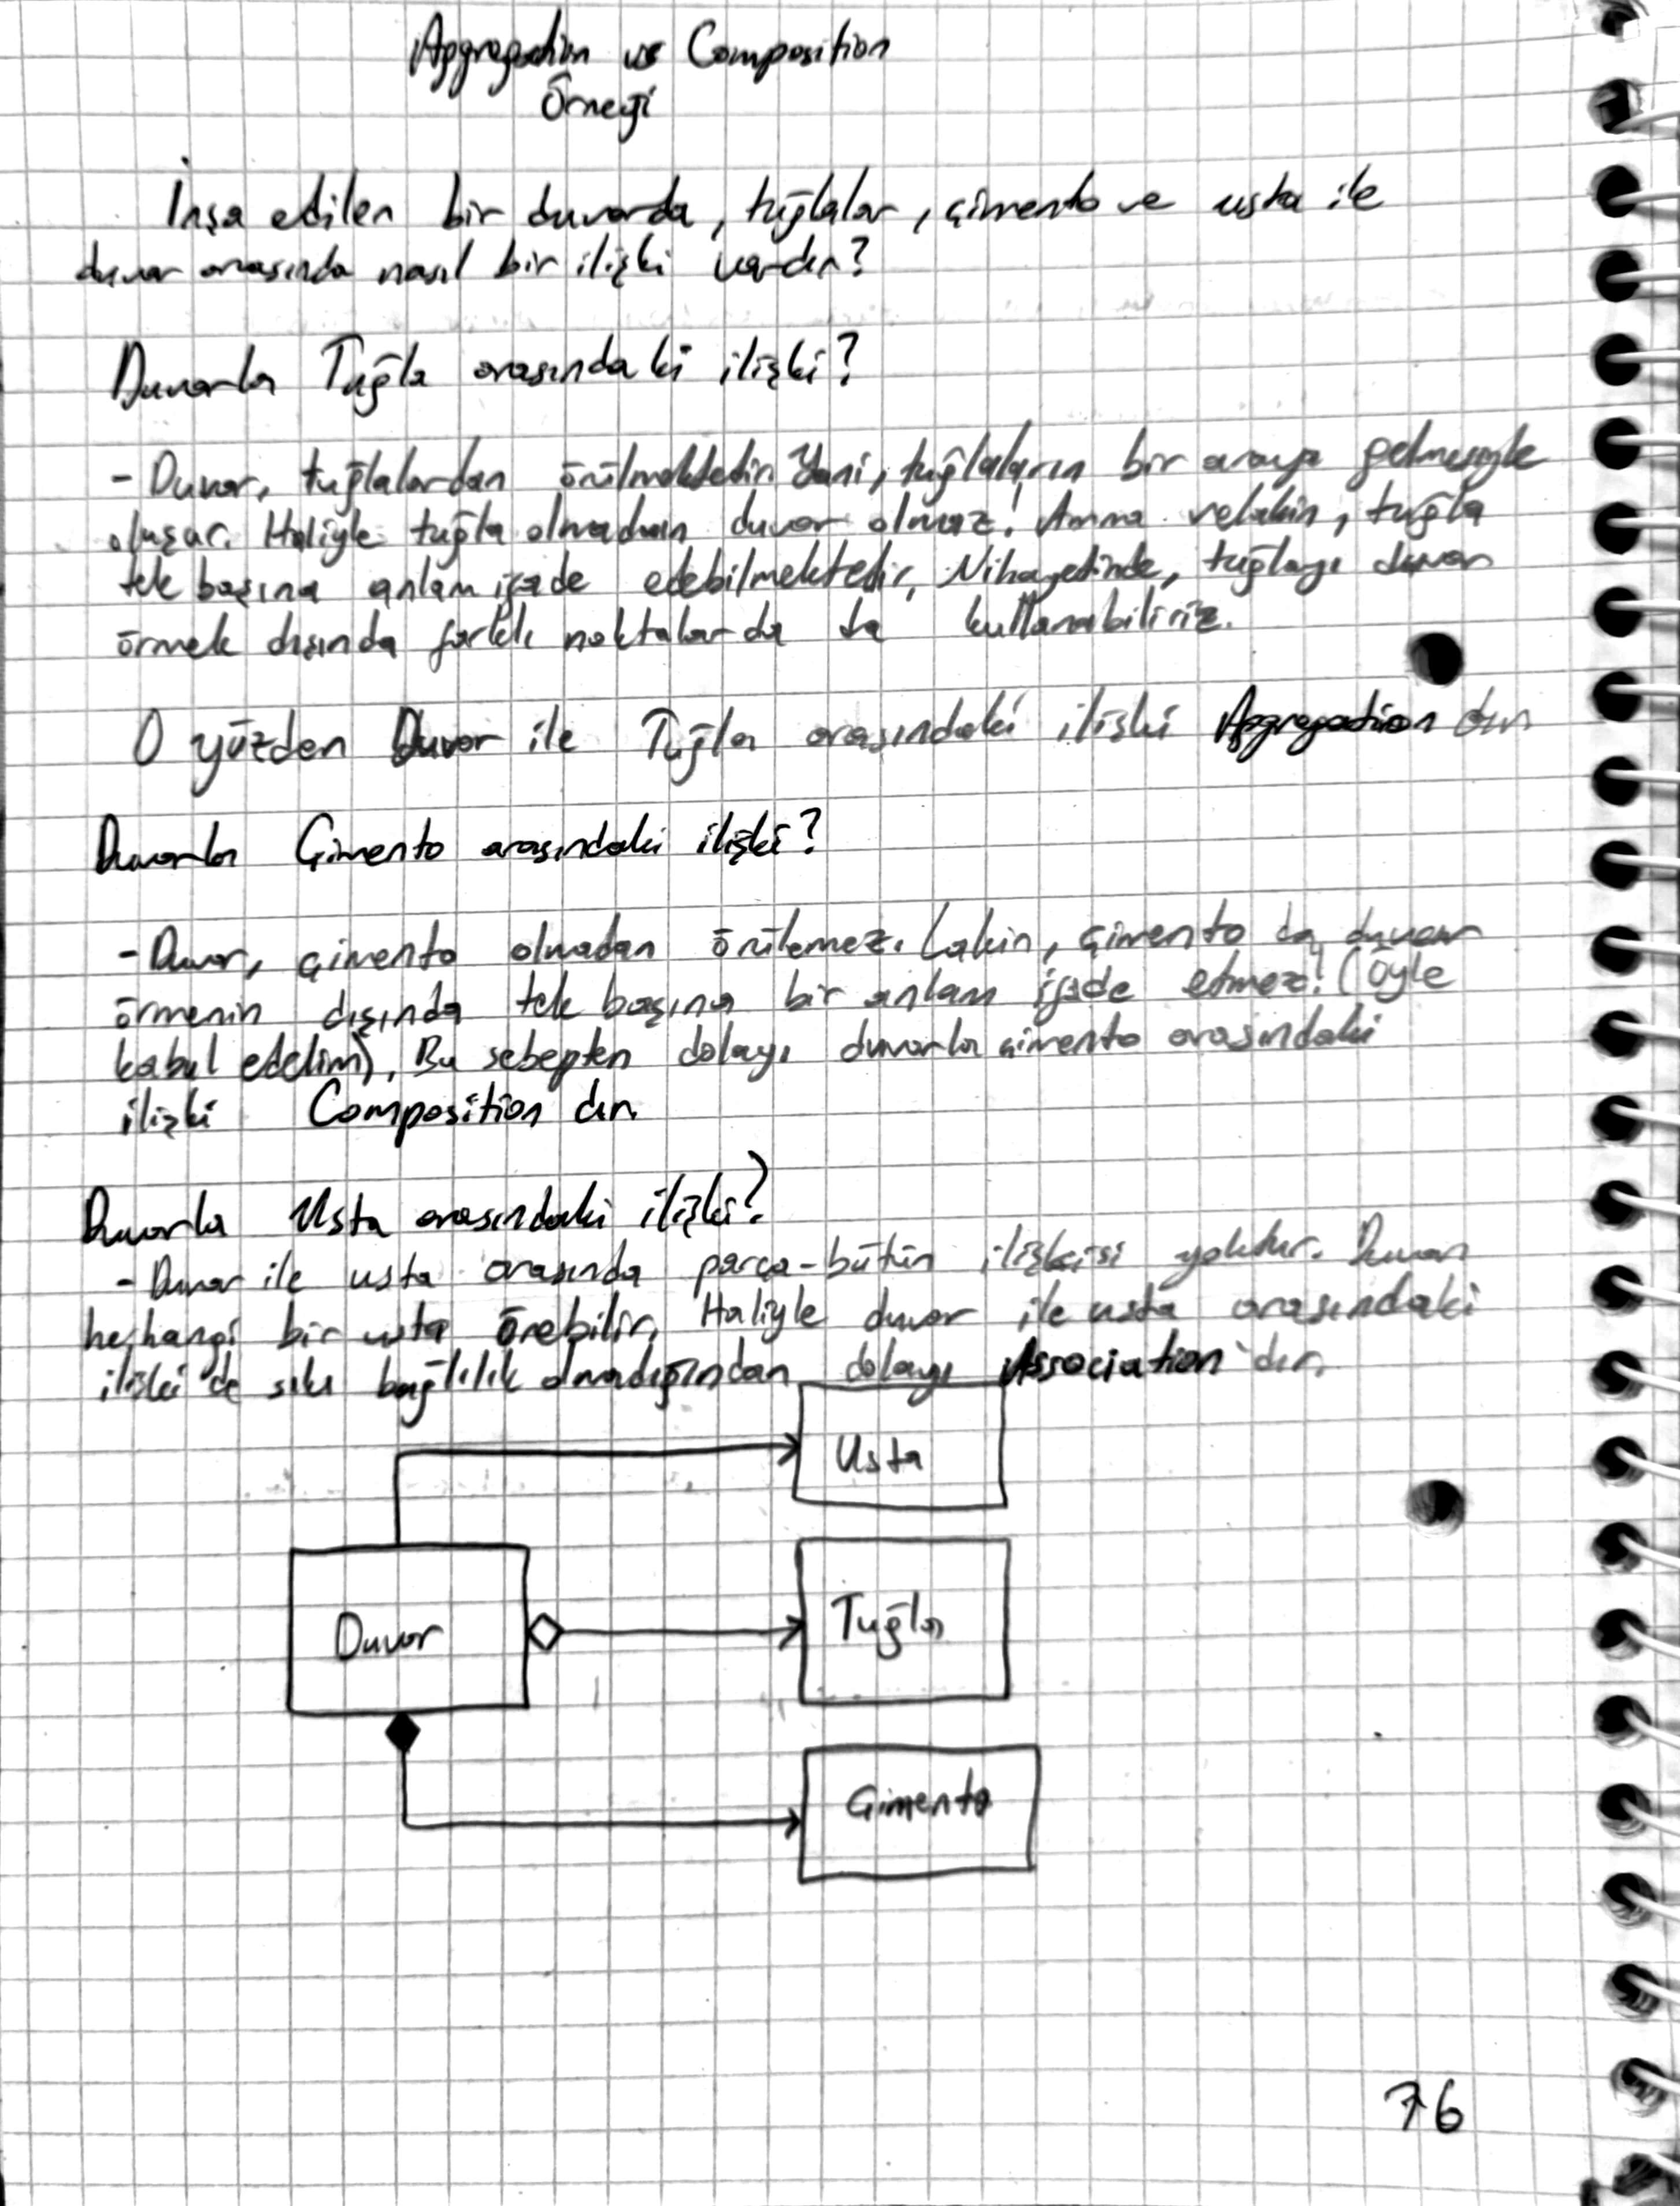 Aggregation vs Composition
Örneği
İnşa edilen bir duvarda, tuğlalar, çimento ve usta ile
duvar arasında nasıl bir ilişki vardır?
Duvarla Tuğla arasındaki ilişki?
- Duvar, tuğlalardan örülmektedir. Yani, tuğlaların bir araya gelmesiyle
oluşur. Haliyle tuğla olmadan duvar olmaz! Amma velakin, tuğla
tek başına anlam ifade edebilmektedir, Nihayetinde, tuğlayı duvar
örmek dışında farklı noktalarda da kullanabiliriz.
O yüzden Duvar ile Tuğla arasındaki ilişki Aggregation dır.
Duvarla Çimento arasındaki ilişki?
- Duvar, çimento olmadan örülemez. Lakin, çimento da duvar
örmenin dışında tek başına bir anlam ifade etmez! (Öyle
kabul edelim), Bu sebepten dolayı duvarla çimento arasındaki
ilişki Composition dır.
Duvarla Usta arasındaki ilişki?
- Duvar ile usta arasında parça-bütün ilişkisi yoktur. Duvarı
herhangi bir usta örebilir, Haliyle duvar ile usta arasındaki
ilişki de sıkı bağlılık olmadığından dolayı Association'dır.
Usta
Duvar
Tuğla
Çimento
76